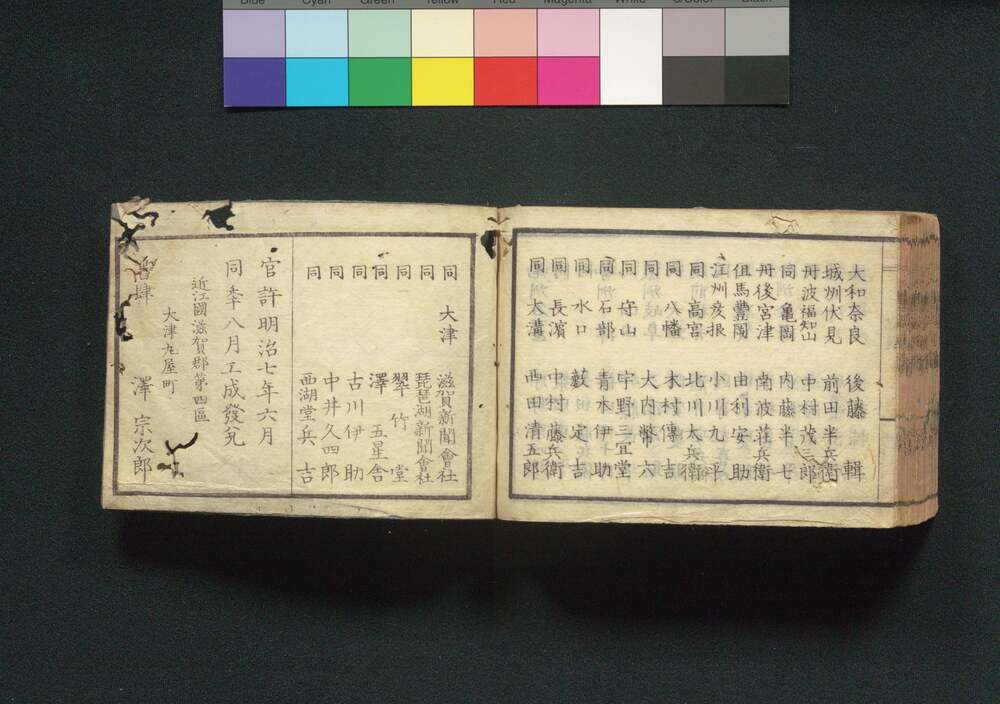 Blue Cyan Green Yellow Red Magenta White 3/Color Black
大和奈良 後藤 輯
城州伏見 前田半兵衞
丹波福知山 中村茂三郎
同 亀岡 内藤半七
丹後宮津 南波莊兵衞
但馬豐岡 由利安助
江州彦根 小川九平
同 高宮 北川太兵衞
同 八幡 木村傳吉
同 大内幣六
同 守山 宇野三宜堂
同 石部 青木伊助
同 水口 藪定吉
同 長濵 中村藤兵衞
同 大溝 西田清五郎
同 大津 滋賀新聞會社
同 琵琶湖新聞會社
同 翠竹堂
同 澤五星舎
同 古川伊助
同 中井久四郎
同 西湖堂兵吉
官許明治七年六月
同年八月工成發兌
近江國滋賀郡第四區
大津丸屋町
書肆 澤宗次郎